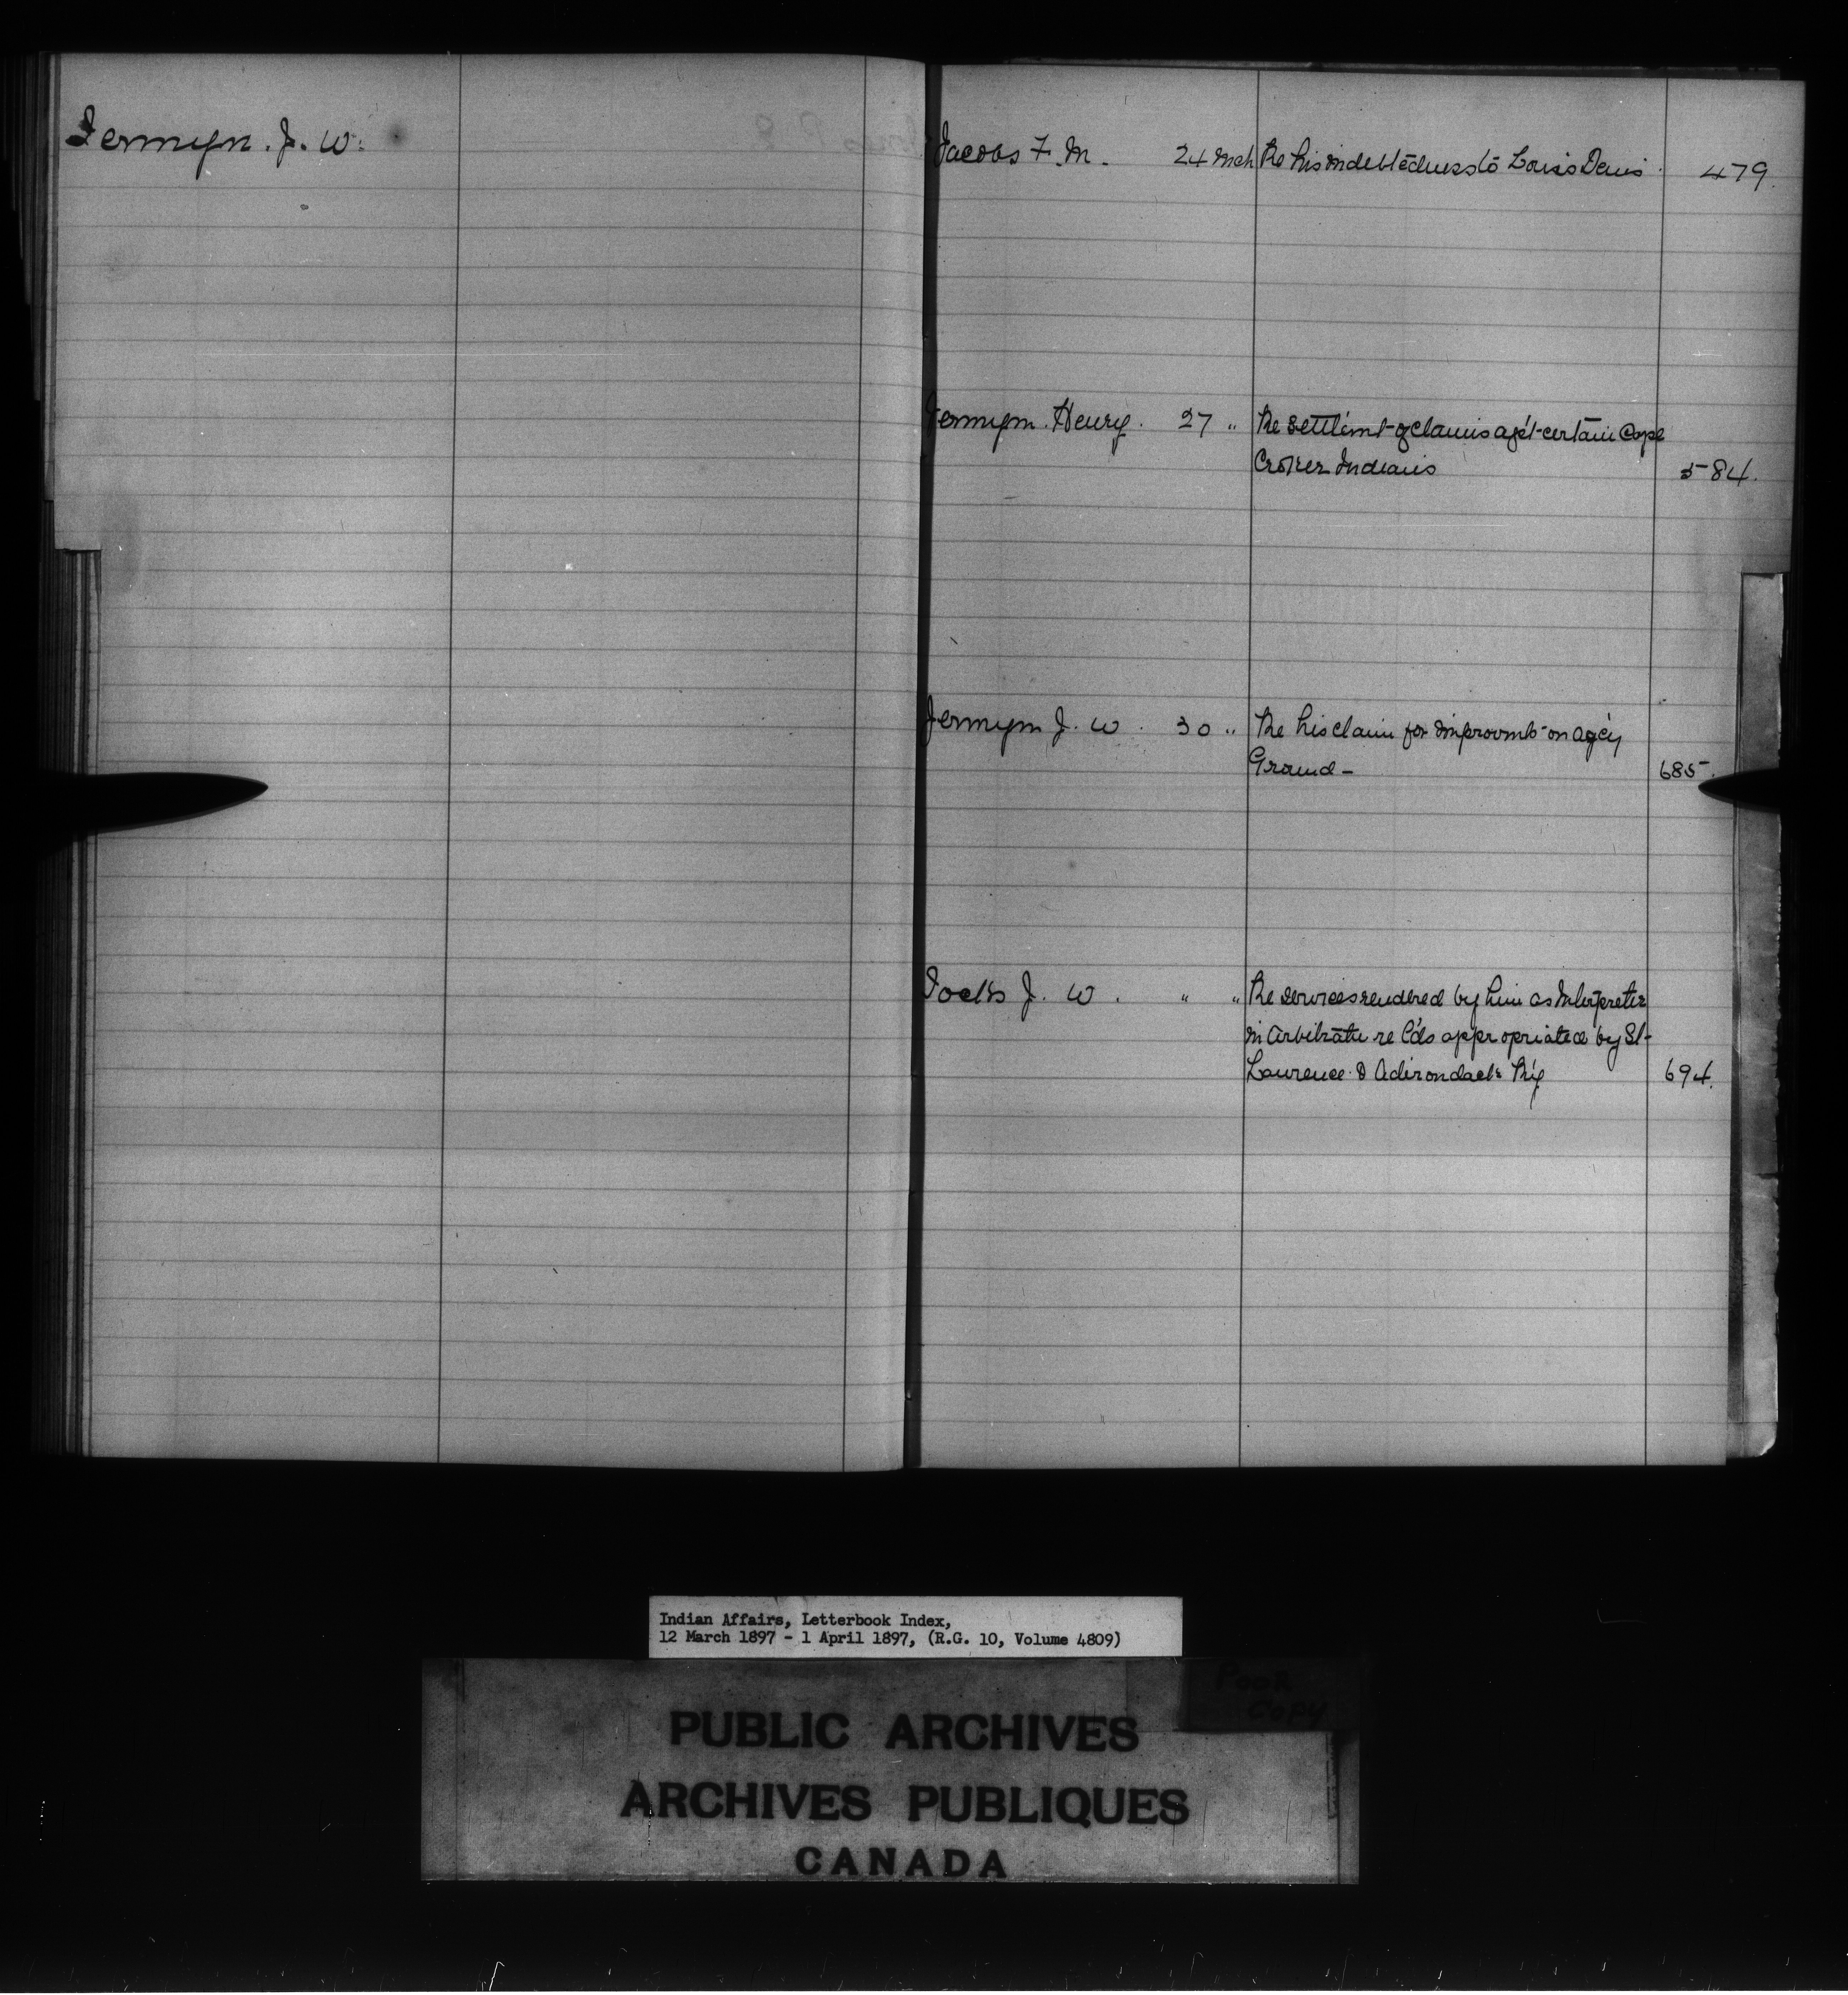 Jermyn. J. W.
Jacobs F. M. 24 Mch Re his indebtedness to Louis Denis 479.
Jermyn. Henry. 27 " Re settlemt of claims agst certain Cape
Croker Indians 584.
Jermyn J. W. 30 " Re his claim for improvmts on agcy
Ground - 685.
Jocks J. W. " " Re services rendered by him as Interpreter
in arbitratn re l'ds appropriated by St-
Lawrence & Adirondack Ry 694.
Indian Affairs, Letterbook Index,
12 March 1897 - 1 April 1897, (R.G. 10, Volume 4809)
Poor
Copy
PUBLIC ARCHIVES
ARCHIVES PUBLIQUES
CANADA